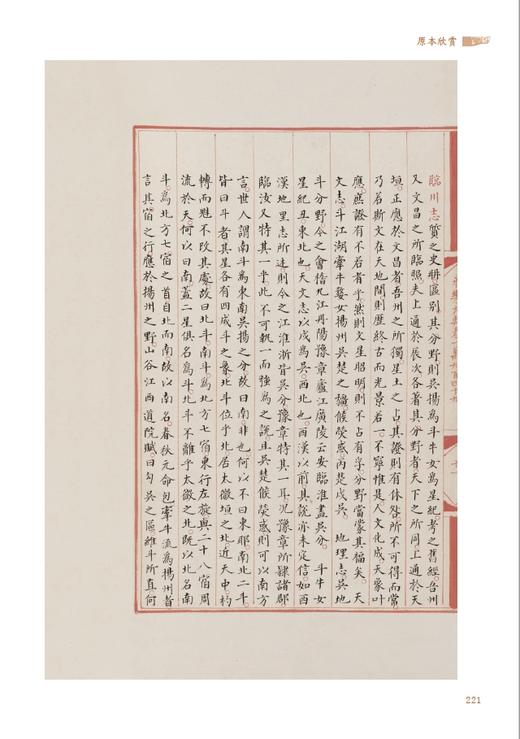 原本欣賞
臨川志質之史冊區別其分野則吳揚為斗牛女為星紀考之舊經吾州
又文昌之所臨照夫上通於辰次各著其分野者天下之所同上通於天
垣正應於文昌者吾州之所獨星土之占其證則有休咎所不可得而常
乃若斯文在天地間則歷終古而光景若一不寧惟是人文化成天象叶
應庶證有不若者乎然則文星昭明則不占有孚分野當蒙其福矣 天
文志斗江湖牽牛婺女揚州吳楚之疆候熒惑丙楚戊吳 地理志吳地
斗分野今之會稽九江丹陽豫章廬江廣陵云安臨淮盡吳分 斗牛女
星紀丑東北也天文志以成為吳西北也西漢以前其說亦未定信如西
漢地里志所述則今之江淮浙皆吳分豫章特其一耳況豫章所隸諸郡
臨汝又特其一乎此不可執一而強為之說且吳楚候熒惑則可以南方
言世人謂南斗為東南吳揚之分故曰南非也何以不曰東南北二斗
皆曰斗者其星各有四成斗之象北斗位乎北居太微垣之北近天中杓
轉而魁不改其處故曰北斗南斗為北方七宿東行左旋與二十八宿周
流於天何以曰南蓋二星俱名為斗北斗不離乎太微之北既以北名南
斗為北方七宿之首自北而南故以南名春秋元命包牽牛流為揚州者
言其宿之行應於揚州之野山谷江西道院賦曰句吳之區維斗所直何
221